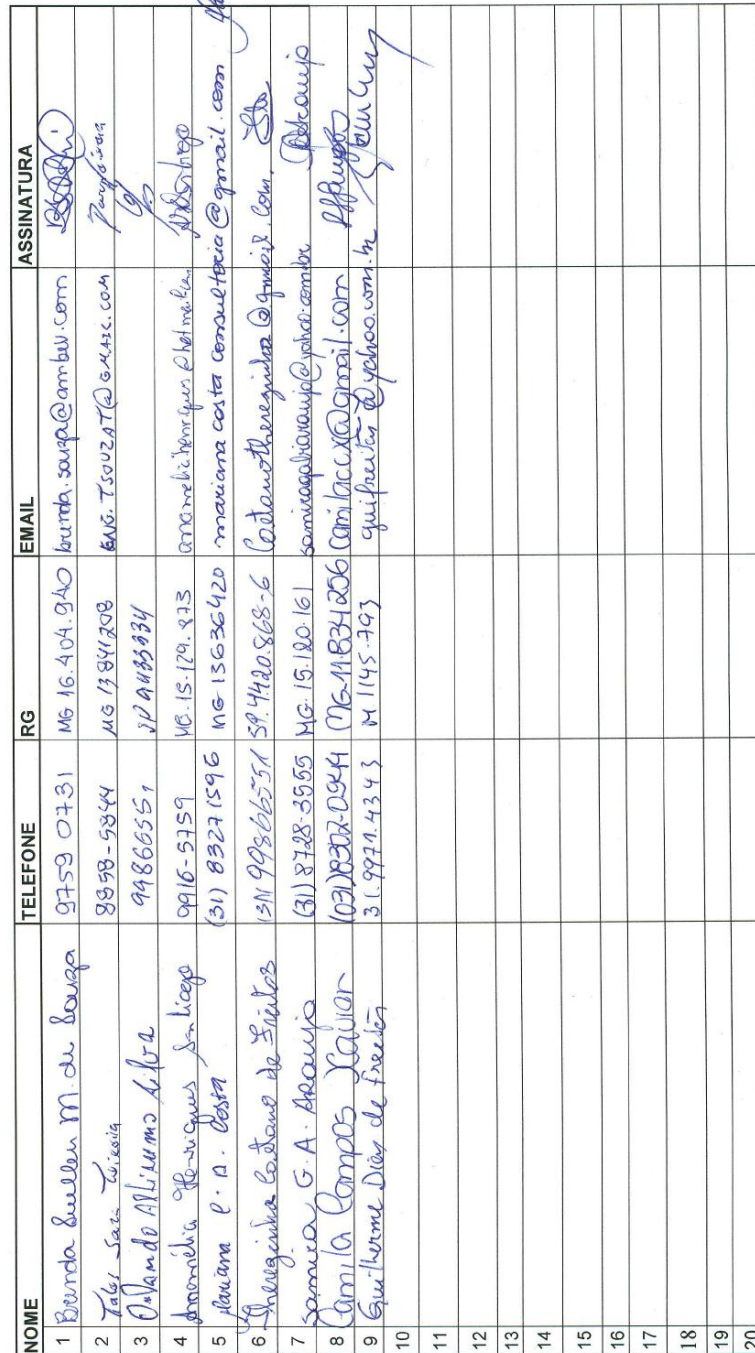 NOME TELEFONE RG EMAIL ASSINATURA
1 Brenda Suellen M. de Souza 9759 0731 MG 16.404.940 brenda.souza@ambev.com
2 Tales 8898-5844 MG 13841208 ENG.TSOUZAT@GMAIL.COM
3 Orlando Silva 998666551
4 Anamélia Henriques Santiago 9916-5759 MG.15.129.873 anameliahenriques@hotmail.com
5 Mariana C. A. Costa (31) 83271596 MG 13636420 marianacostaconsultoria@gmail.com
6 Therezinha Caetano de Freitas (31) 998666551 SP.4420.868-6 Caetanotherezinha@gmail.com
7 Samira G. A. Araujo (31) 8728-3555 MG.15.120.161 samiragabiaraujo@yahoo.com.br
8 Camila Campos Xavier (031) MG-11.834256 Camilaccx@gmail.com
9 Guilherme Dias de Freitas 31.9971.4343 M 1145.793 guifreitas@yahoo.com.br
10
11
12
13
14
15
16
17
18
19
20